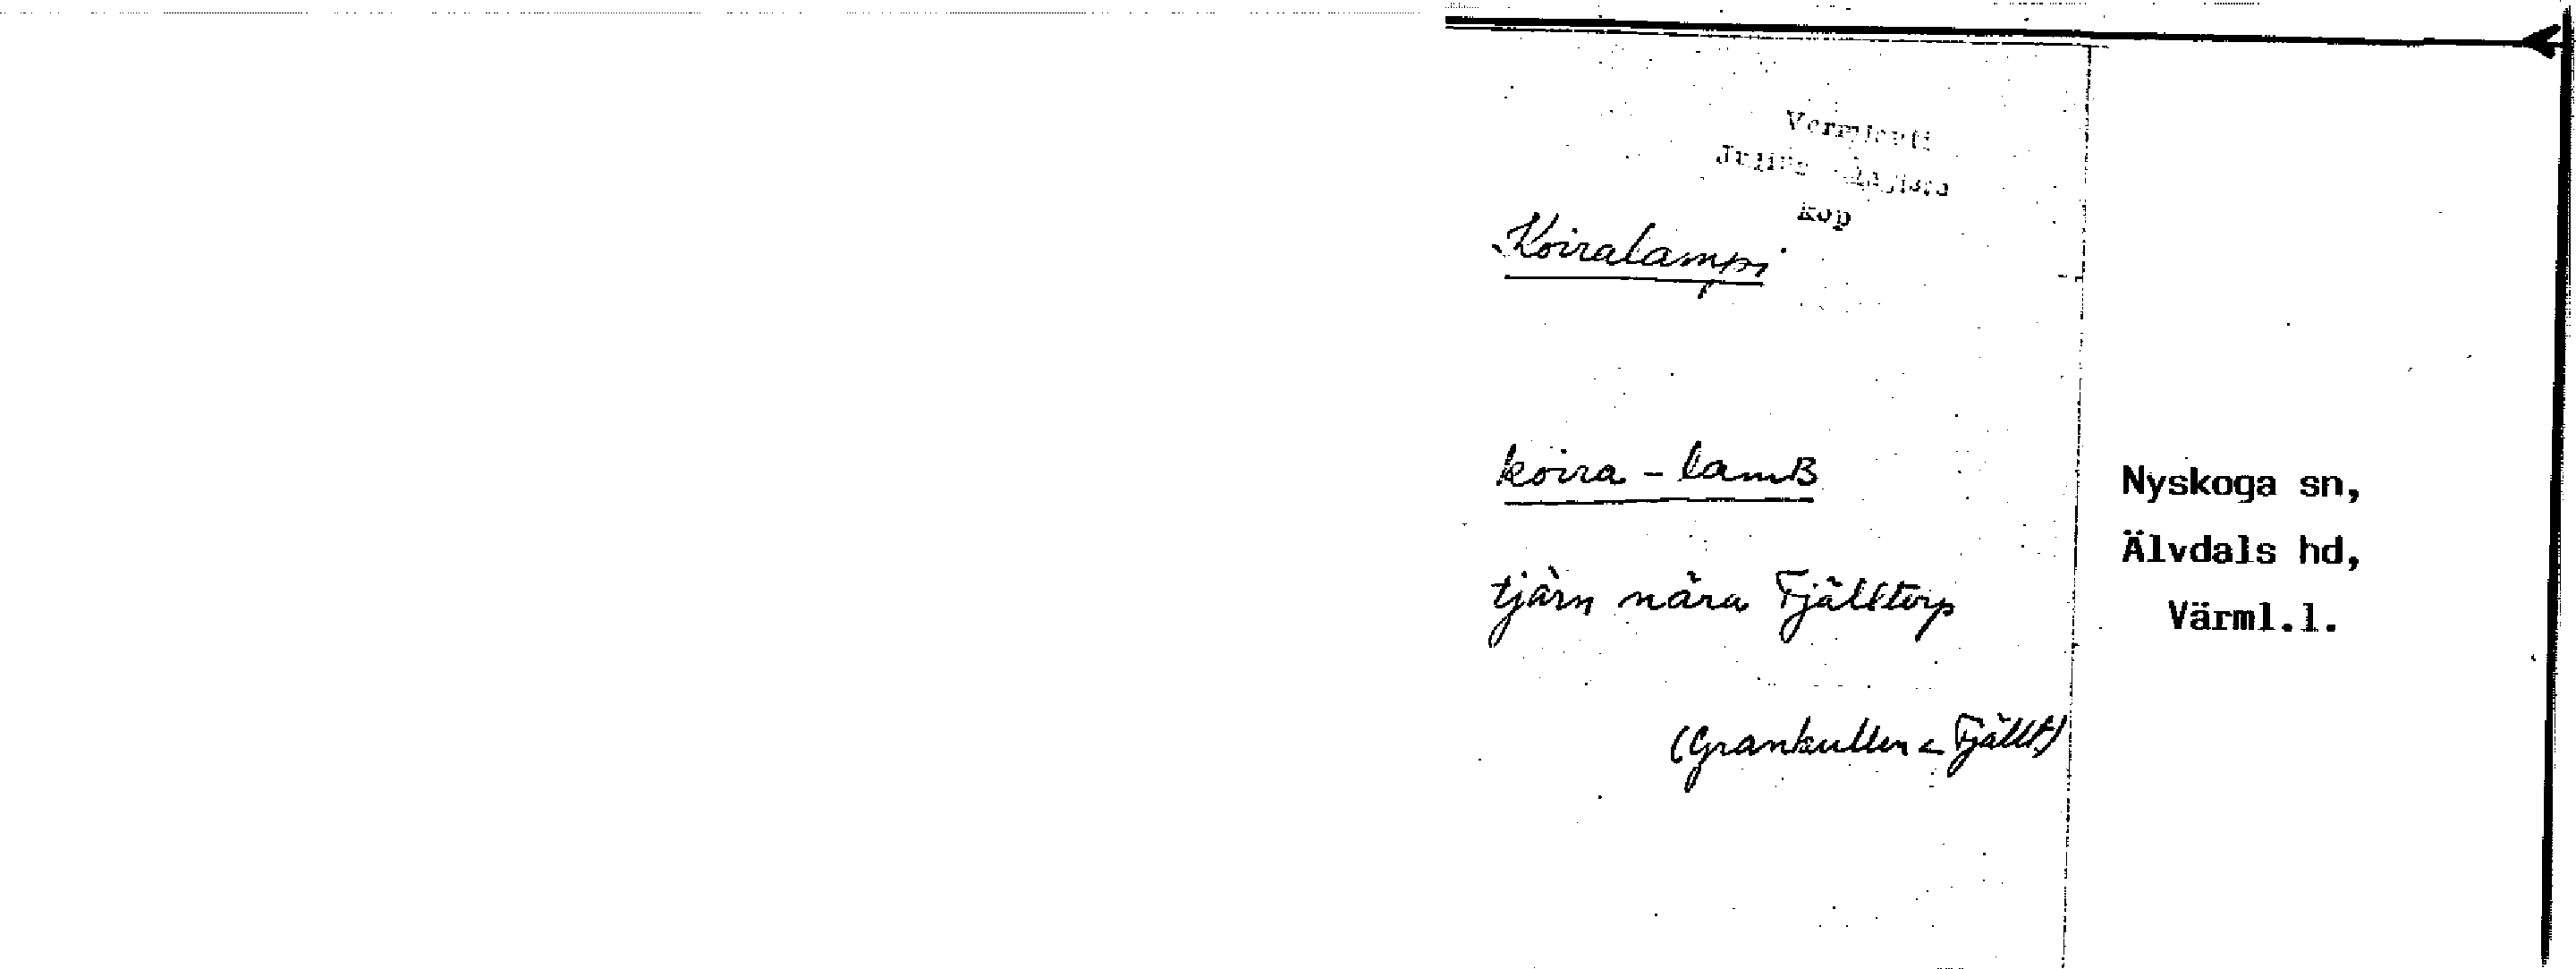 Kop
Koiralampi
koira-lamB
tjärn nära Fjälltorp
(Grankullen < Fjällt)
Nyskoga sn,
Älvdals hd,
Värml.l.